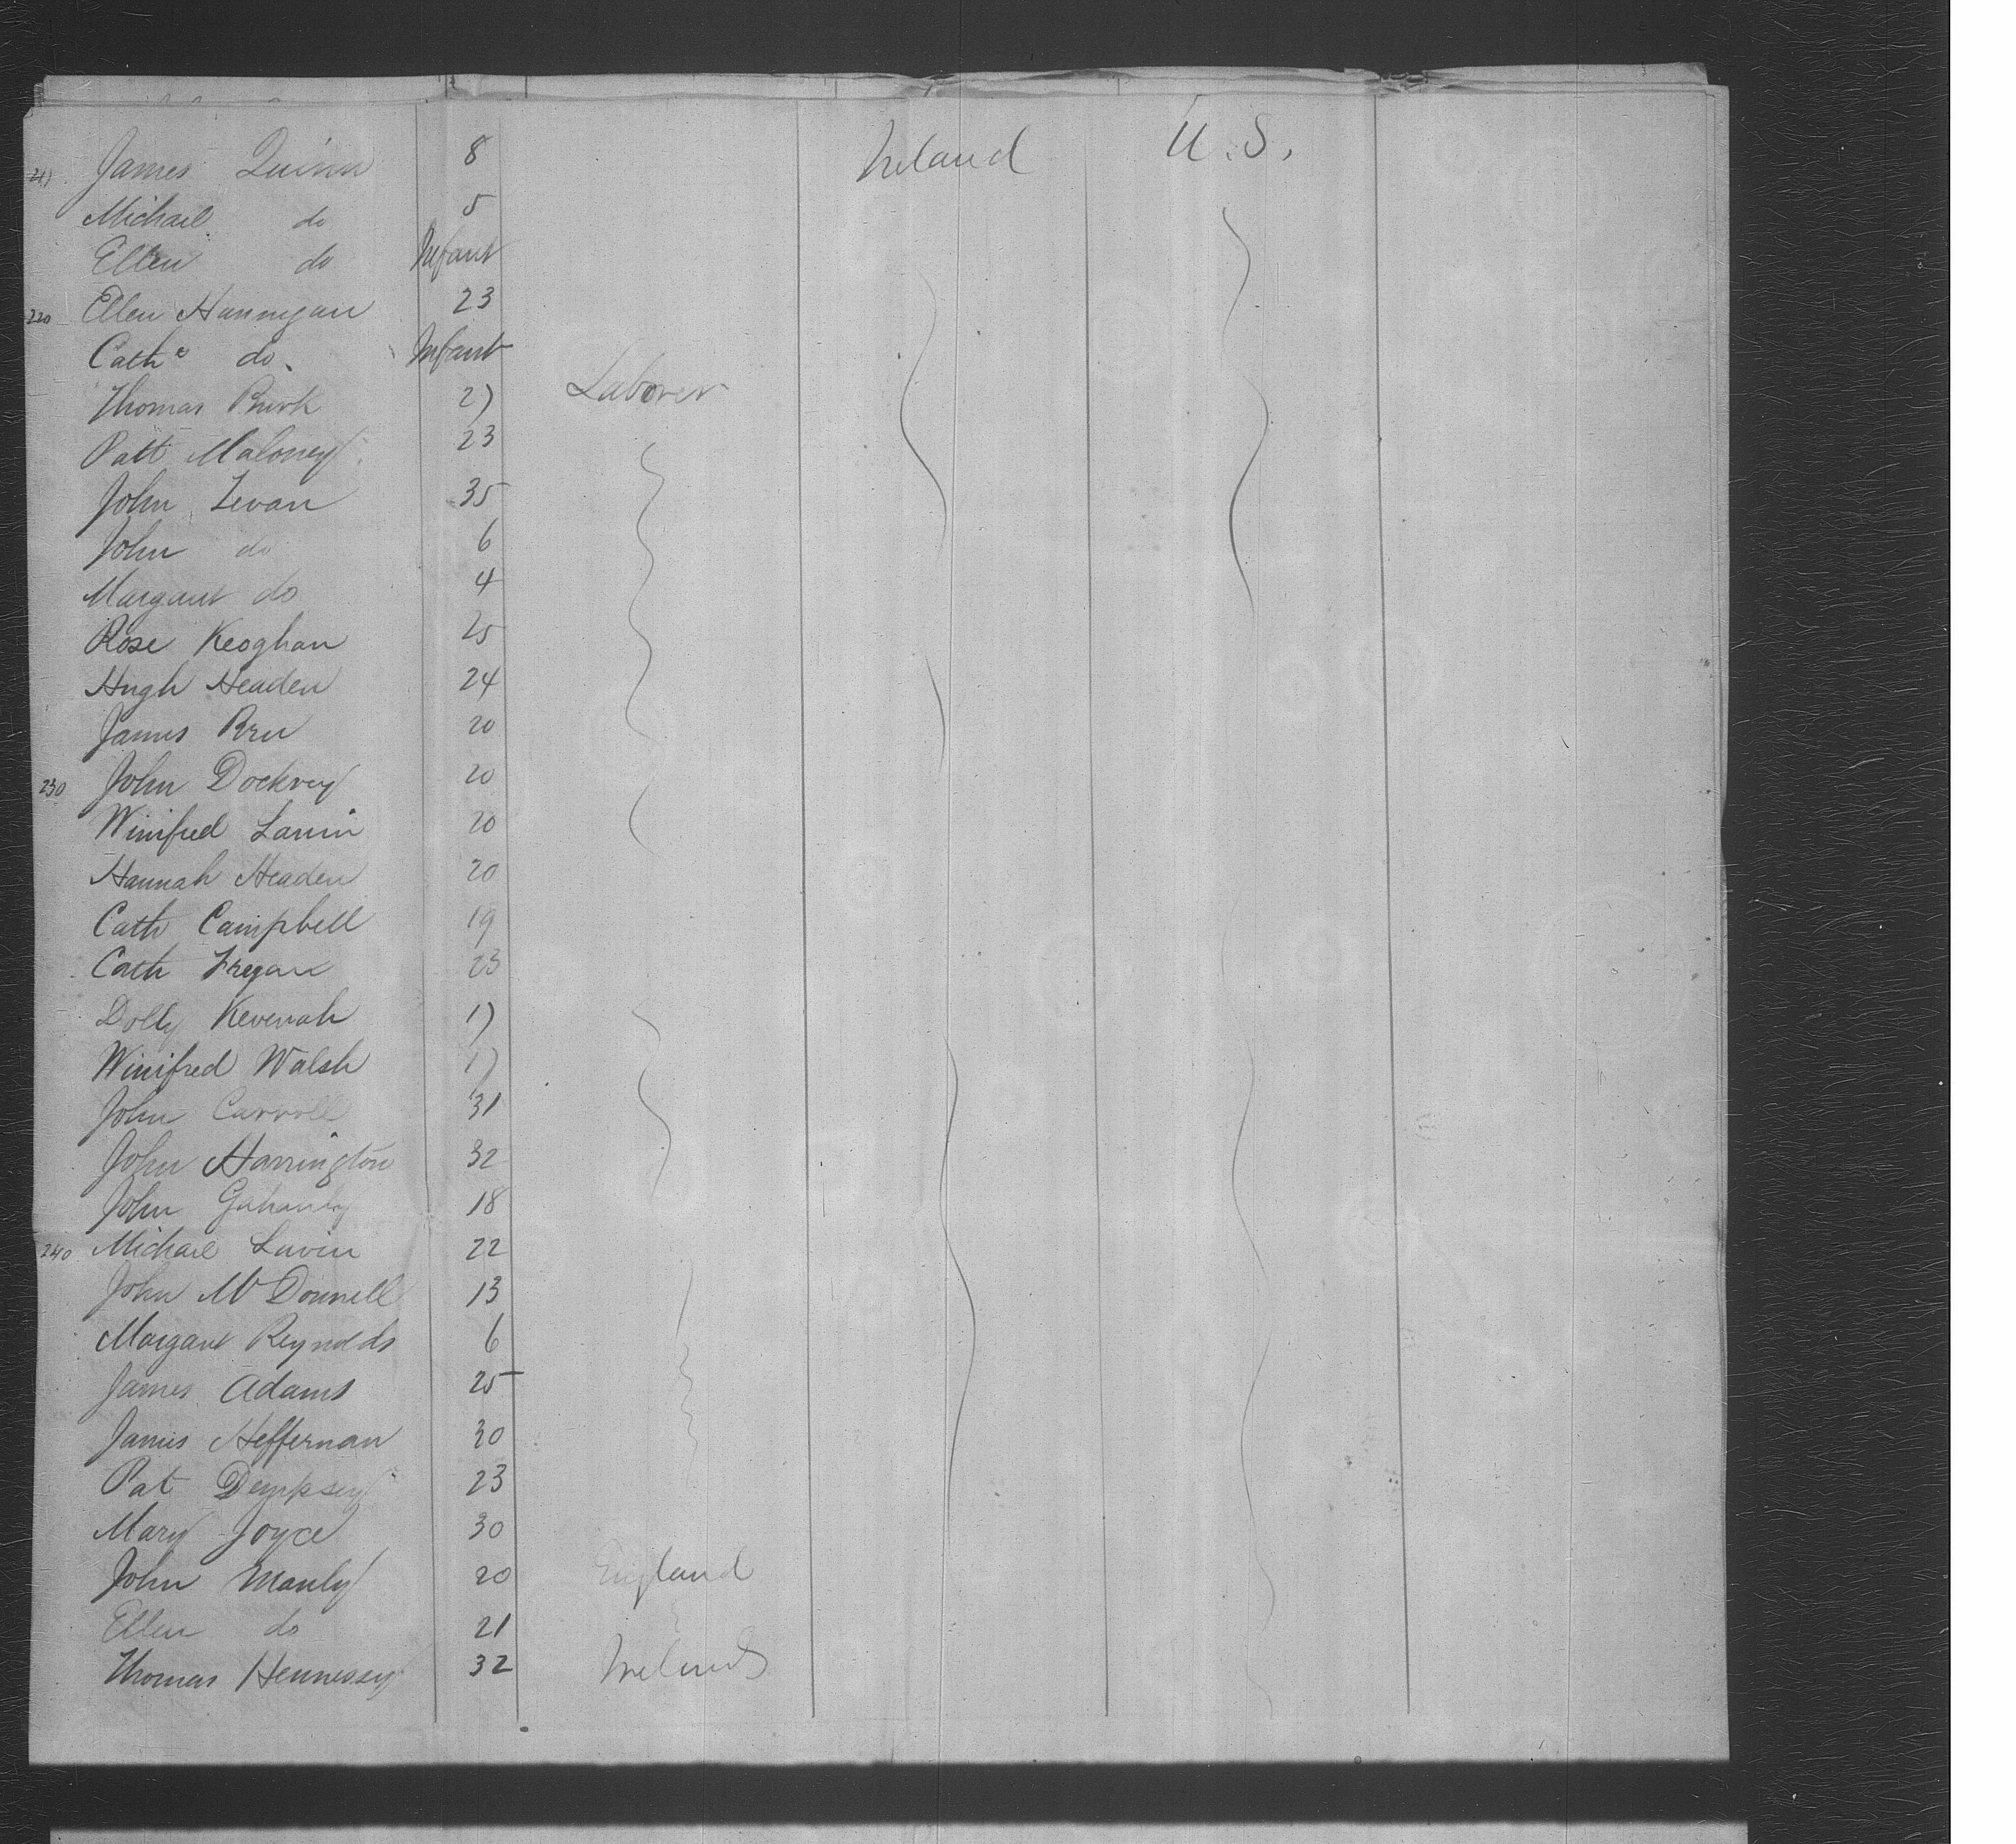 217 James Quinn 8 Ireland U.S.
Michael do 5
Ellen do Infant
220 Ellen Hannigan 23
Cathe do. Infant
Thomas Burk 27 Laborer
Patt Maloney 23
John 35
John do 6
Margaret do 4
Rose Keoghan 25
Hugh Headen 24
James 20
230 John Dockrey 20
Winifred 20
Hannah Headen 20
Cath Campbell 19
Cath 23
Dolly Kevenah 17
Winifred Walsh 17
John Carroll 31
John Harrington 32
John 18
240 Michael Lavin 22
John McDonnell 13
Margaret Reynolds 6
James Adams 25
James Heffernan 30
Pat Dempsey 23
Mary Joyce 30
John Manly 20 England
Ellen do 21
Thomas Hennessy 32 Ireland